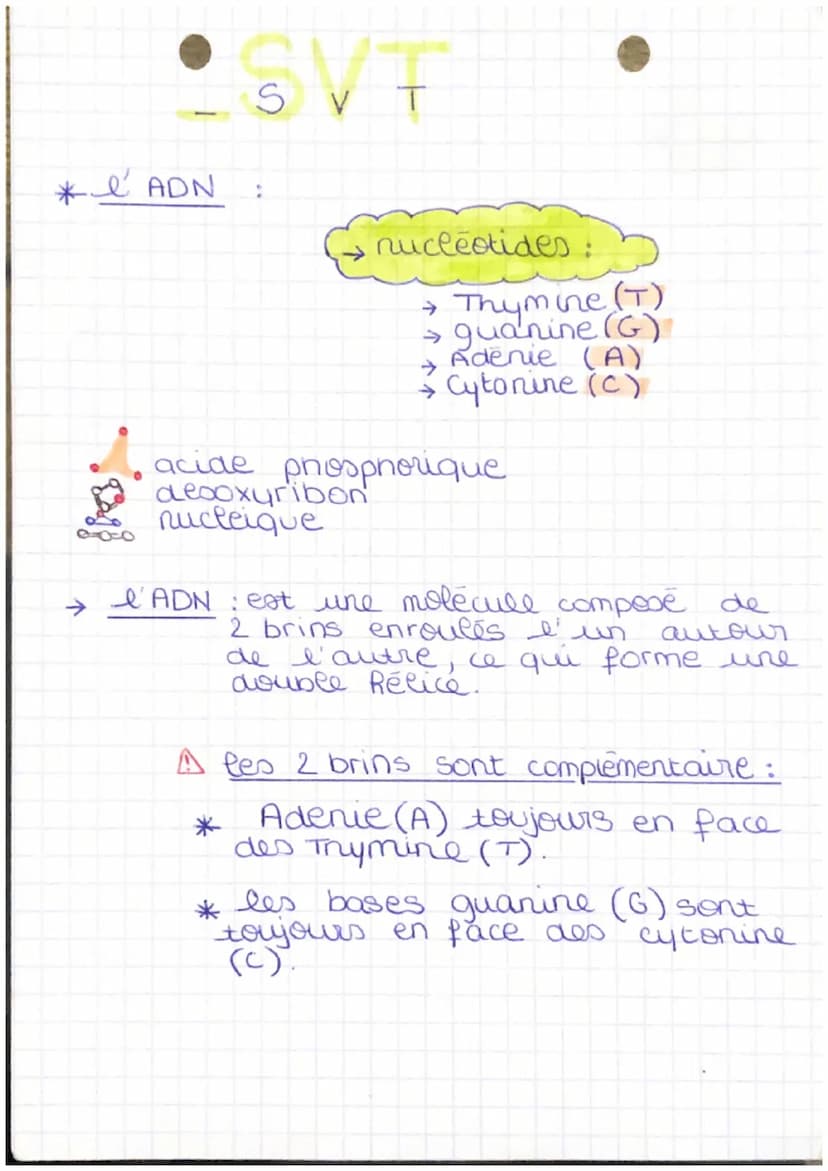 _SVT
_ S V T
* l'ADN :
→ nucléotides :
→ Thymine (T)
→ guanine (G)
→ Adénie (A)
→ Cytonine (C)
acide phosphorique
desoxyribon
nucleique
→ l'ADN : est une molécule composé de
2 brins enroulés l'un autour
de l'autre, ce qui forme une
double hélice.
⚠ les 2 brins sont complémentaire :
* Adenie (A) toujours en face
des Thymine (T).
* les bases guanine (G) sont
toujours en face des cytonine
(C).